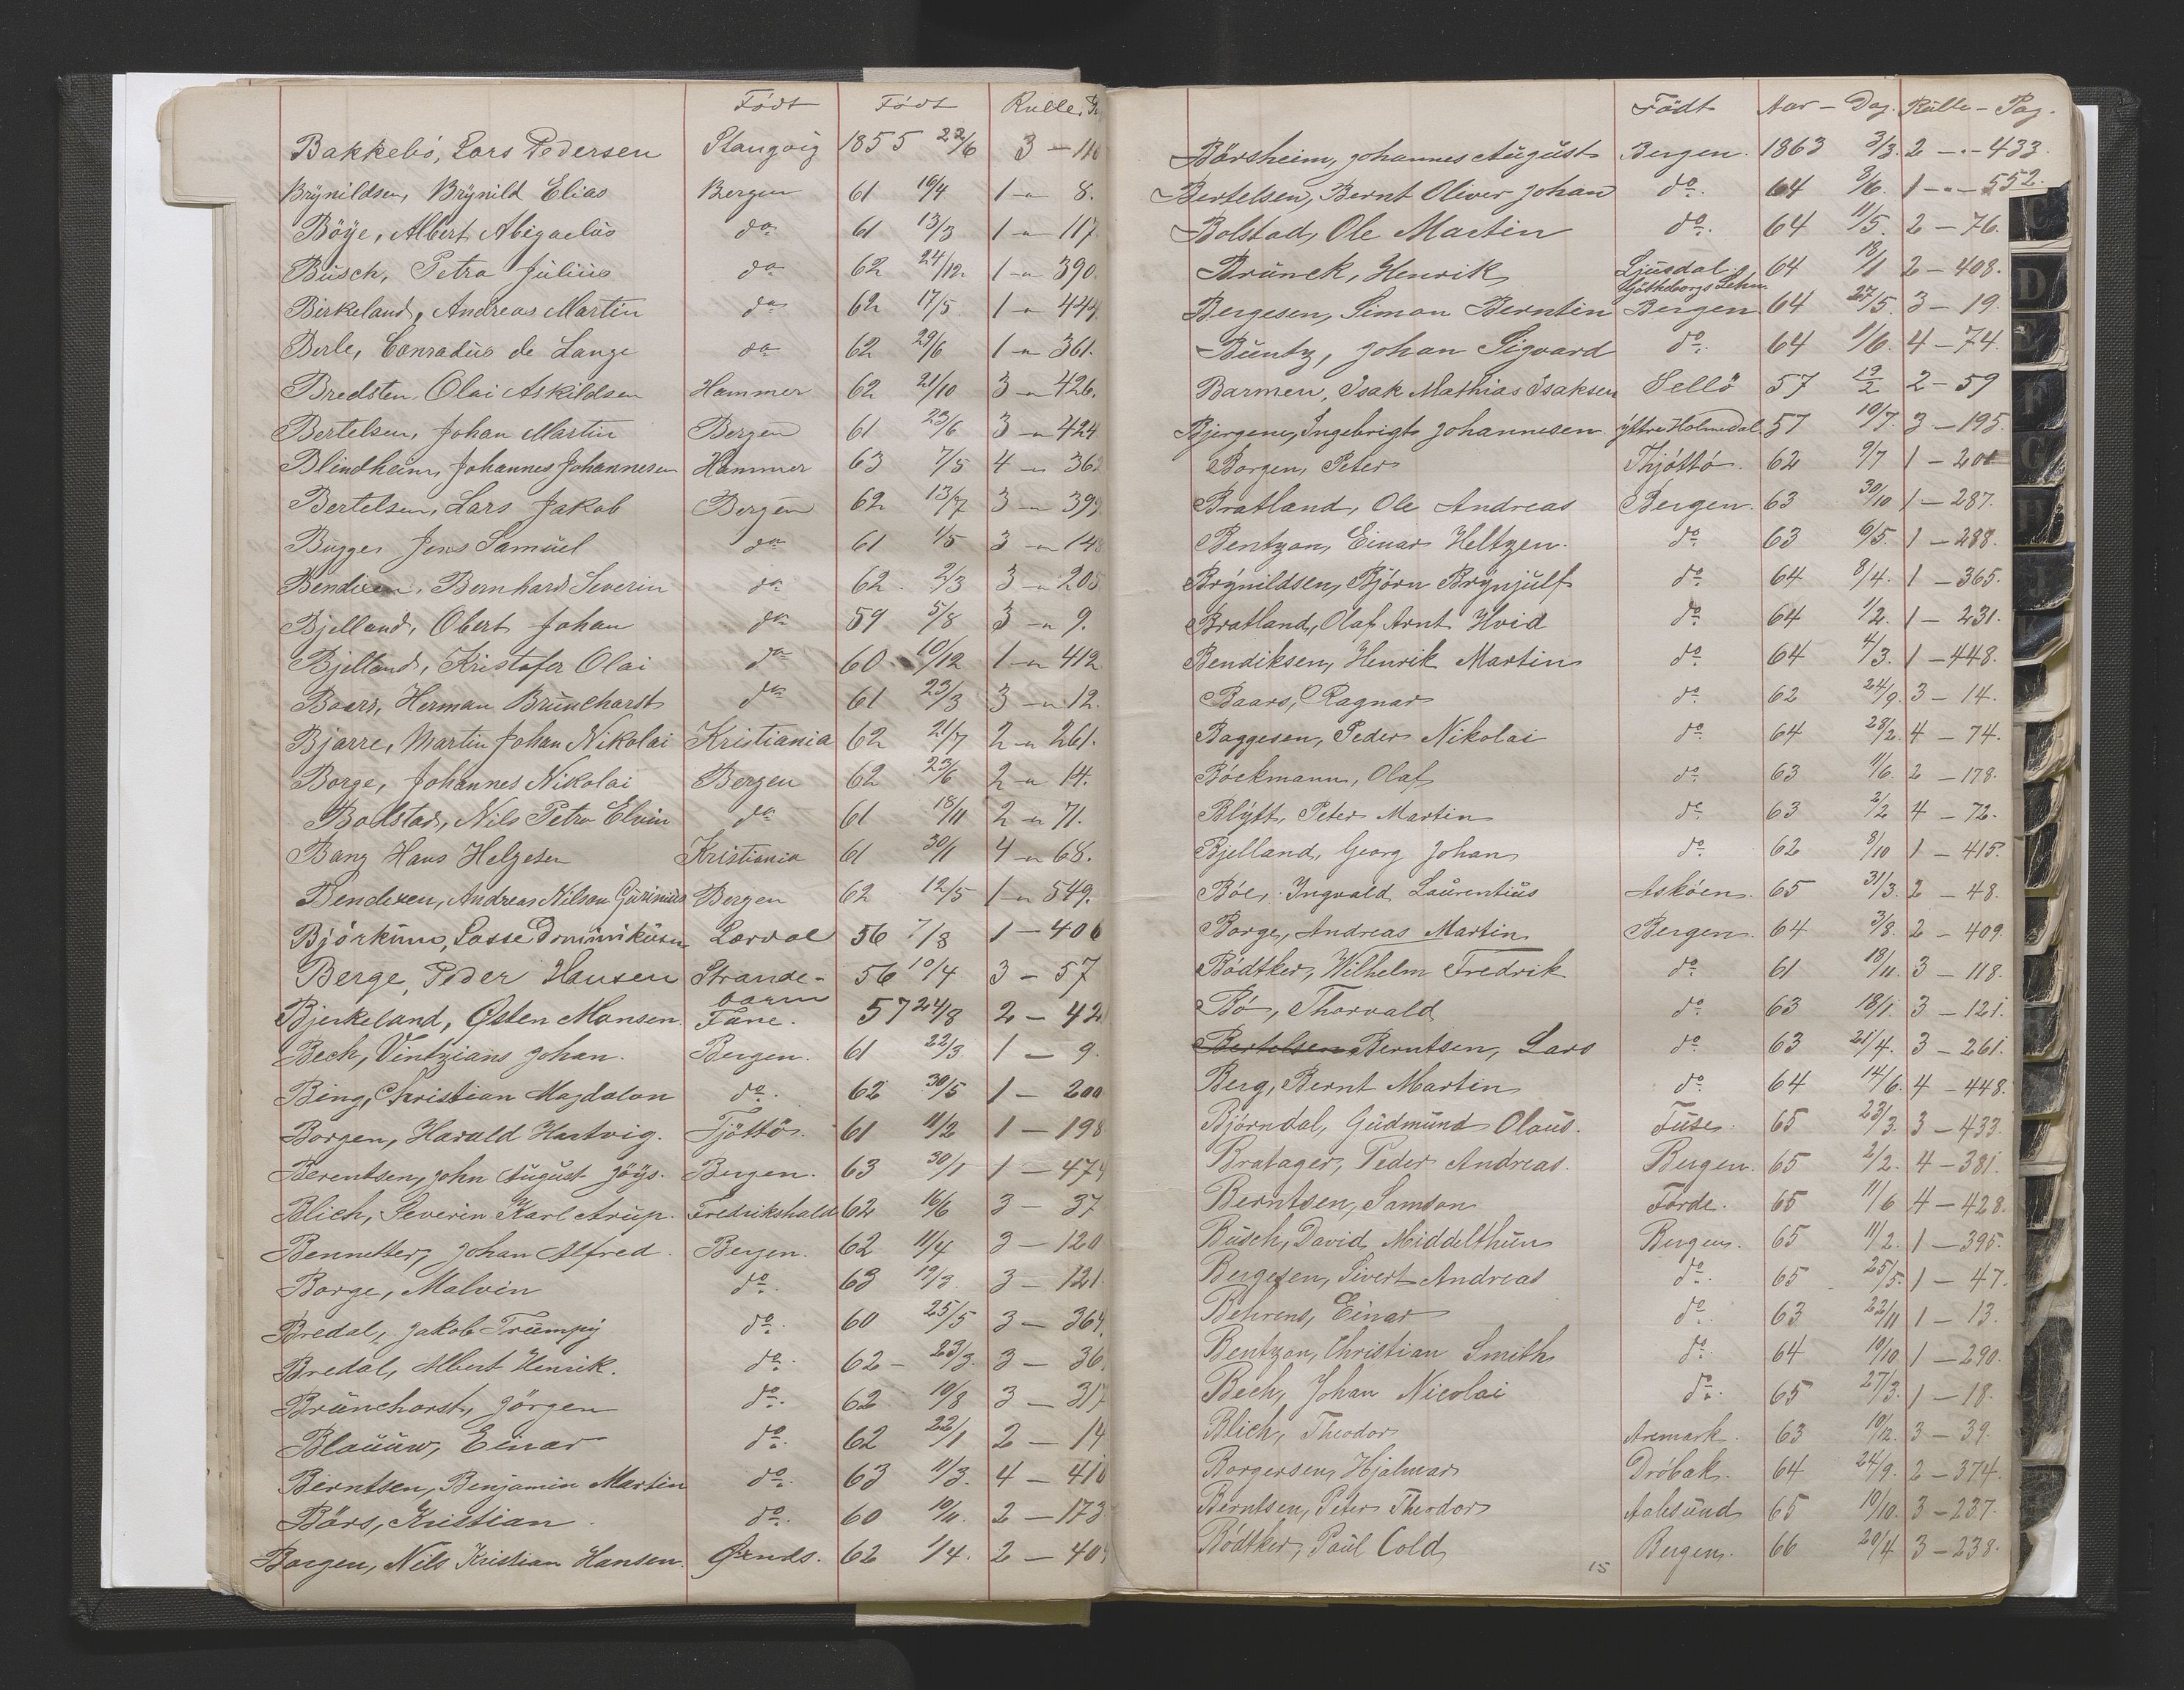 Födt Födt Rulle
Bakkebö, Lars Pedersen Stangvig 1855 22/6 3 —
Brÿnildsen, Brÿnild Elias Bergen 61 16/4 1 — 8.
Böÿe, Albert Abigaelüs do 61 13/3 1 — 117.
Büsch, Petra Jüliüs do 62 24/12. 1 — 390.
Birkeland, Andreas Martin do 62 17/5. 1 — 444.
Berle, Conradüs de Lange do 62 29/6 1 — 361.
Bredsten, Olai Askildsen Hammer 62 21/10 3 — 426.
Bertelsen, Johan Martin Bergen 61 23/6 3 — 424
Blindheim, Johannes Johannesen Hammer 63 7/5 4 — 36
Bertelsen, Lars Jakob Bergen 62 13/7 3 — 399
Bügge, Jens Samüel do 61 1/5 3 — 148
Bendixen, Bernhard Severin do 62. 2/3 3 — 205
Bjelland, Obert Johan do 59 5/8 3 — 9.
Bjelland, Kristofer Olai do 60. 10/12 1 — 412
Baars, Herman Brünchorst do 61 23/3 3 — 12.
Bjarre, Martin Johan Nikolai Kristiania 62 21/7 2 — 261.
Borge, Johannes Nikolai Bergen 62 23/6 2 — 14.
Bolstad, Nils Petro Elvin do 61 18/11 2 — 71.
Bang Hans Helgesen Kristiania 61 30/1 4 — 68.
Bendixen, Andreas Nilson Gürinius Bergen 62 12/5 1 — 549.
Björküm, Lasse Dominiküsen Lærdal 56 7/8 1 — 406
Berge, Peder Hansen Strande- 56 10/4 3 — 57
barm
Bjerkeland, Østen Monsen Fane. 57 24/8 2 — 42
Bech, Vintzians Johan. Bergen. 61 22/3. 1 — 9.
Bing, Christian Magdalon do. 62 30/5 1 — 200
Borgen, Harald Hartvig. Tjöttö. 61 11/2 1 — 198
Berentsen, John August Jöÿs. Bergen. 63 30/1 1 — 474
Blich, Severin Karl Arüp. Fredrikshald 62 16/6 3 — 37
Bennetter, Johan Alfred. Bergen. 62 11/4 3 — 120
Borge, Malvin do. 63 19/3. 3 — 121
Bredal, Jakob Trümpÿ do. 60 25/5 3 — 364.
Bredal, Albert Henrik. do. 62 — 23/3. 3 — 36.
Brünchorst, Jörgen do. 62 10/8 3 — 317
Blaüüw, Einar do. 62 22/1 2 — 14
Berntsen, Benjamin Martin do. 63 11/3. 4 — 410
Börs, Kristian. do. 60 10/11. 2 — 173
Borgen, Nils Kristian Hansen. Ørnds. 62 1/4. 2 — 40
Födt Aar — Dag. Rülle — Pag.
Börsheim, Johannes Aügüst Bergen. 1863 3/3. 2 — 433.
Bertelsen, Bernt Oliver Johan do. 64 3/6. 1 — 552.
Bolstad, Ole Martin do. 64 11/5. 2 — 76.
Brünek, Henrik Ljüsdal. 64 18/1 2 — 408.
Götheborgs Lehn.
Bergesen, Simon Berntin Bergen 64 27/5. 3 — 19.
Büntz, Johan Sigvard do. 64 1/6. 4 — 74.
Barmen, Isak Mathias Isaksen Sellö 57 19/2 2 — 59
Bjergene, Ingebrigt Johannesen. Ÿttre Holmedal. 57 10/7. 3 — 195.
Borgen, Peter Thjöttö. 62 9/7 1 — 201
Bratland, Ole Andreas Bergen. 63 30/10 1 — 287.
Bentzon, Einar Heltzen. do. 63 6/5. 1 — 288.
Brÿnildsen, Björn Brÿnjülf do. 64 8/4. 1 — 365.
Bratland, Olaf Arnt Hvid do. 64 1/2. 1 — 231.
Bendiksen, Henrik Martin do. 64 4/3. 1 — 448.
Baars, Ragnar do. 62 24/9. 3 — 14.
Baggesen, Peder Nikolai do. 64 28/2. 4 — 74.
Böckmann, Olaf do. 63 11/6. 2 — 178.
Blÿtt, Peter Martin do. 63 2/2 4 — 72.
Bjelland, Georg Johan do. 62 8/10 1 — 415.
Böe, Ingvald Laürentiüs Asköen. 65 31/3. 2 — 48.
Borge, Andreas Martin Bergen. 64 3/8. 2 — 409.
Bödtker, Wilhelm Fredrik do. 61 18/11. 3 — 118.
Bö, Thorvald do. 63 18/1. 3 — 121.
Bertelsen Berntsen, Lars do. 63 21/4. 3 — 261.
Berg, Bernt Martin do. 64 14/6. 4 — 448.
Björndal, Güdmünd Olaüs. Füse. 65 23/3. 3 — 433.
Bratager, Peder Andreas. Bergen. 65 2/2. 4 — 381.
Berntsen, Samson Förde. 65 11/6 4 — 428.
Büsch, David Middelthün Bergen. 65 11/2. 1 — 395.
Bergesen, Sivert Andreas do. 65 25/5. 1 — 47.
Behrens, Einar do. 63 22/11 1 — 13.
Bentzon, Christian Smith do. 64 10/10 1 — 290.
Bech, Johan Nicolai do. 65 27/3. 1 — 18.
Blich, Theodor Aremark. 63 10/12. 3 — 39.
Borgersen, Hjalmar Dröbak. 64 24/9. 2 — 374.
Berntsen, Peter Theodor Aalesünd 65 10/10. 3 — 237.
Bödtker, Paül Cold Bergen. 66 20/4 3 — 238.
15
C
D
F
G
H
J